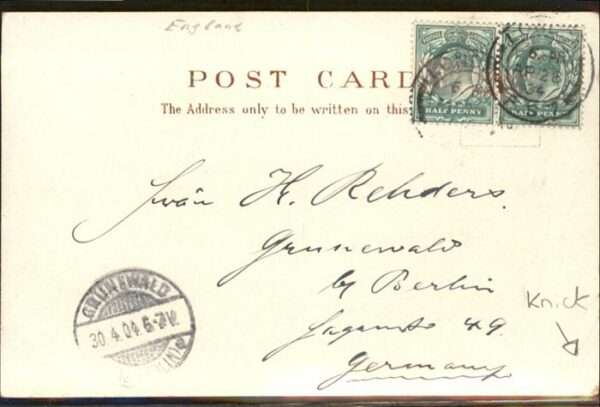 England
POST CARD
The Address only to be written on this
HALF PENNY
HALF PENNY
H. Rehders.
Grunewald
by Berlin
49.
Germany
Knick
GRUNEWALD
30.4.04.6-7V.